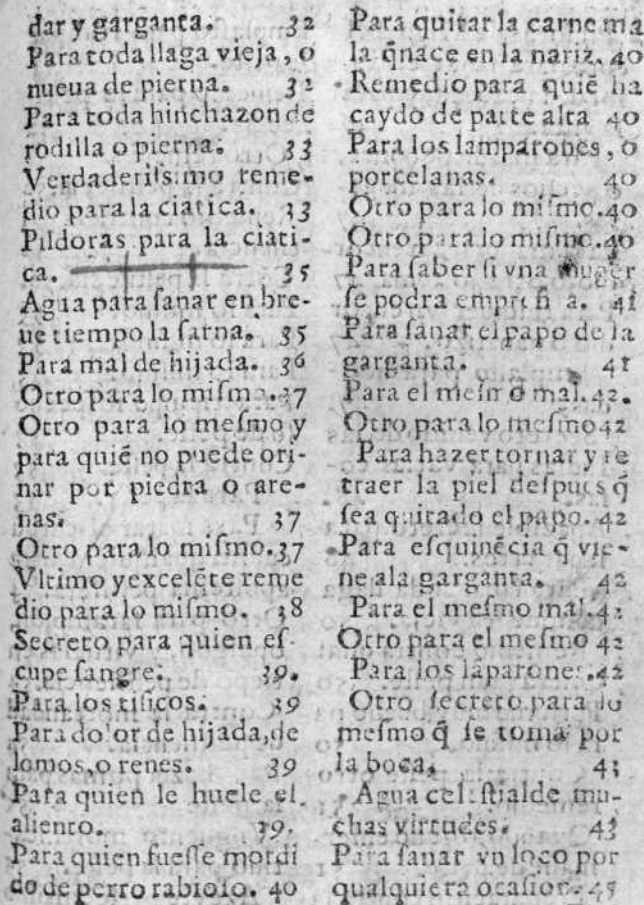 dar y garganta. 32
Para toda llaga vieja, o
nueua de pierna. 32
Para toda hinchazon de
rodilla o pierna. 33
Verdaderiſsimo reme-
dio para la ciatica. 33
Pildoras para la ciati-
ca. 35
Agua para ſanar en bre-
ue tiempo la ſarna. 35
Para mal de hijada. 36
Otro para lo miſmo. 37
Otro para lo meſmo y
para quiẽ no puede ori-
nar por piedra o are-
nas. 37
Otro para lo miſmo. 37
Vltimo y excelẽte reme
dio para lo miſmo. 38
Secreto para quien eſ-
cupe ſangre. 39.
Para los tiſicos. 39
Para dolor de hijada, de
lomos, o renes. 39
Para quien le huele el
aliento. 39.
Para quien fueſſe mordi
do de perro rabioſo. 40
Para quitar la carne ma
la q̃ nace en la nariz. 40
Remedio para quiẽ ha
caydo de parte alta 40
Para los lamparones, o
porcelanas. 40
Otro para lo miſmo. 40
Otro para lo miſmo. 40
Para ſaber ſi vna muger
ſe podra 41
Para ſanar el papo de la
garganta. 41
Para el meſmo mal. 42.
Otro para lo meſmo 42
Para hazer tornar y re
traer la piel deſpues q̃
ſea quitado el papo. 42
Para eſquinẽcia q̃ vie-
ne ala garganta. 42
Para el meſmo mal. 42
Otro para el meſmo 42
Para los lãparones. 42
Otro ſecreto para lo
meſmo q̃ ſe toma por
la boca. 43
Agua celeſtial de mu-
chas virtudes. 43
Para ſanar vn loco por
qualquiera ocaſion. 45